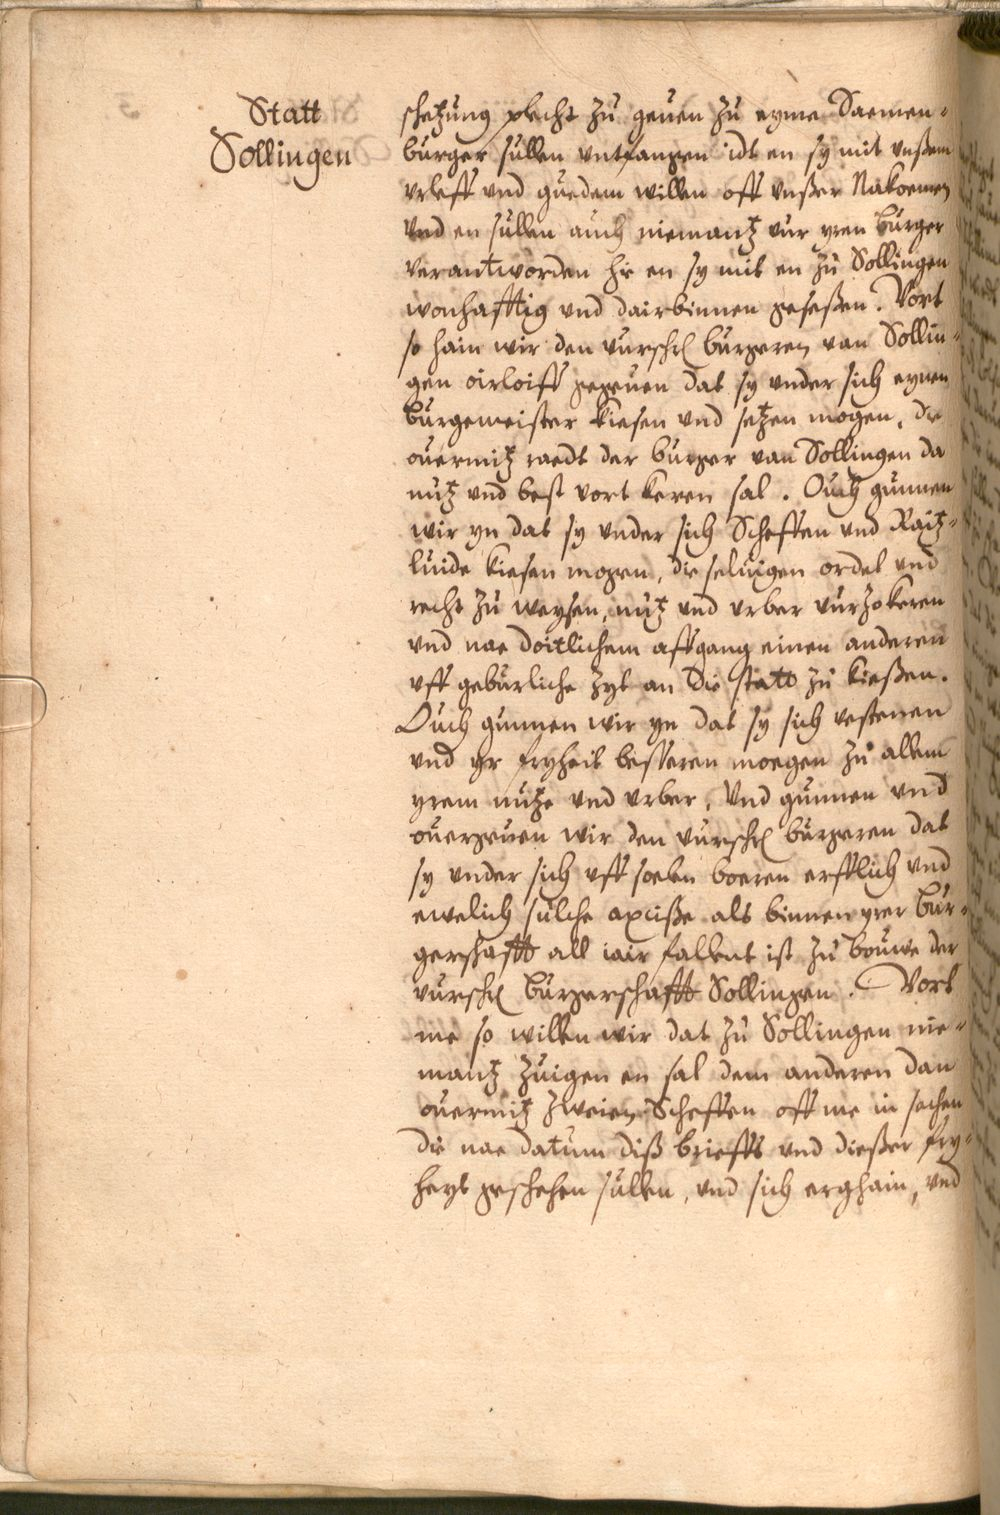 Statt
Sollingen
schetzung plecht zu geuen zu eyme Saemen-
burger sullen untfangen idt en sy mit unßem
urleff und guedem willen off unßer Nakoemen
Und en sullen auch niemantz vur yren burger
verantworden hie en sy mit en zu Sollingen
wonhafftig und dairbinnen geseßen. Vort
so hain wir den vurschr burgeren van Sollin-
gen oirloiff gegeuen dat sy under sich eynen
burgemeister kiesen und setzen mogen, die
ouermitz raedt der burger van Sollingen da
nutz und best vort keren sal. Ouch gunnen
wir yn dat sy under sich Scheffen und Raitz-
luide kiesen mogen, die seluigen ordel und
recht zu weysen, nutz und urber vurzokeren
und nae doitlichem affgang einen anderen
uff geburliche zyt an die statt zu kießen.
Ouch gunnen wir yn dat sy sich vestenen
und yr fryheit besseren moegen zu allem
yrem nutze und urber, Und gunnen und
ouergeuen wir den vurschr burgeren dat
sy under sich uff boeren erfflich und
ewelich sulche axciße als binnen yrer bur-
gerschafft all iair fallent ist zu bouwe der
vurschr burgerschafft Sollingen. Vort
me so willen wir dat zu Sollingen nie-
mantz zuigen en sal dem anderen dan
ouermitz zweien Scheffen off me in sachen
die nae datum diß brieffs und dießer fry-
heyt geschehen sullen, und sich erghain, und